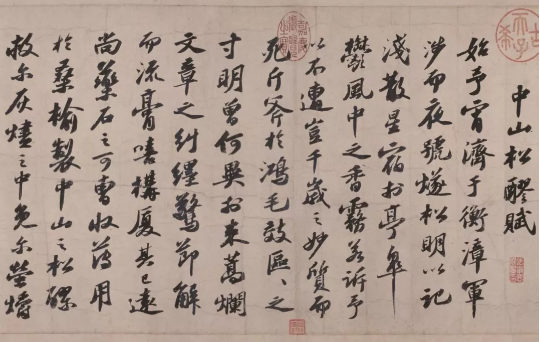 中山松醪賦
始予宵濟于衡漳軍
涉而夜號燧松明以記
淺散星宿於亭皋
鬱風中之香霧若訴予
以不遭豈千歲之妙質而
死斤斧於鴻毛效區〻之
寸明曾何異於束蒿爛
文章之糾纆驚節解
而流膏嘻構廈其已遠
尚藥石之可曹收薄用
於桑榆製中山之松醪
救尔灰燼之中免尔螢爝
古希天子
嘉慶御覽之寶